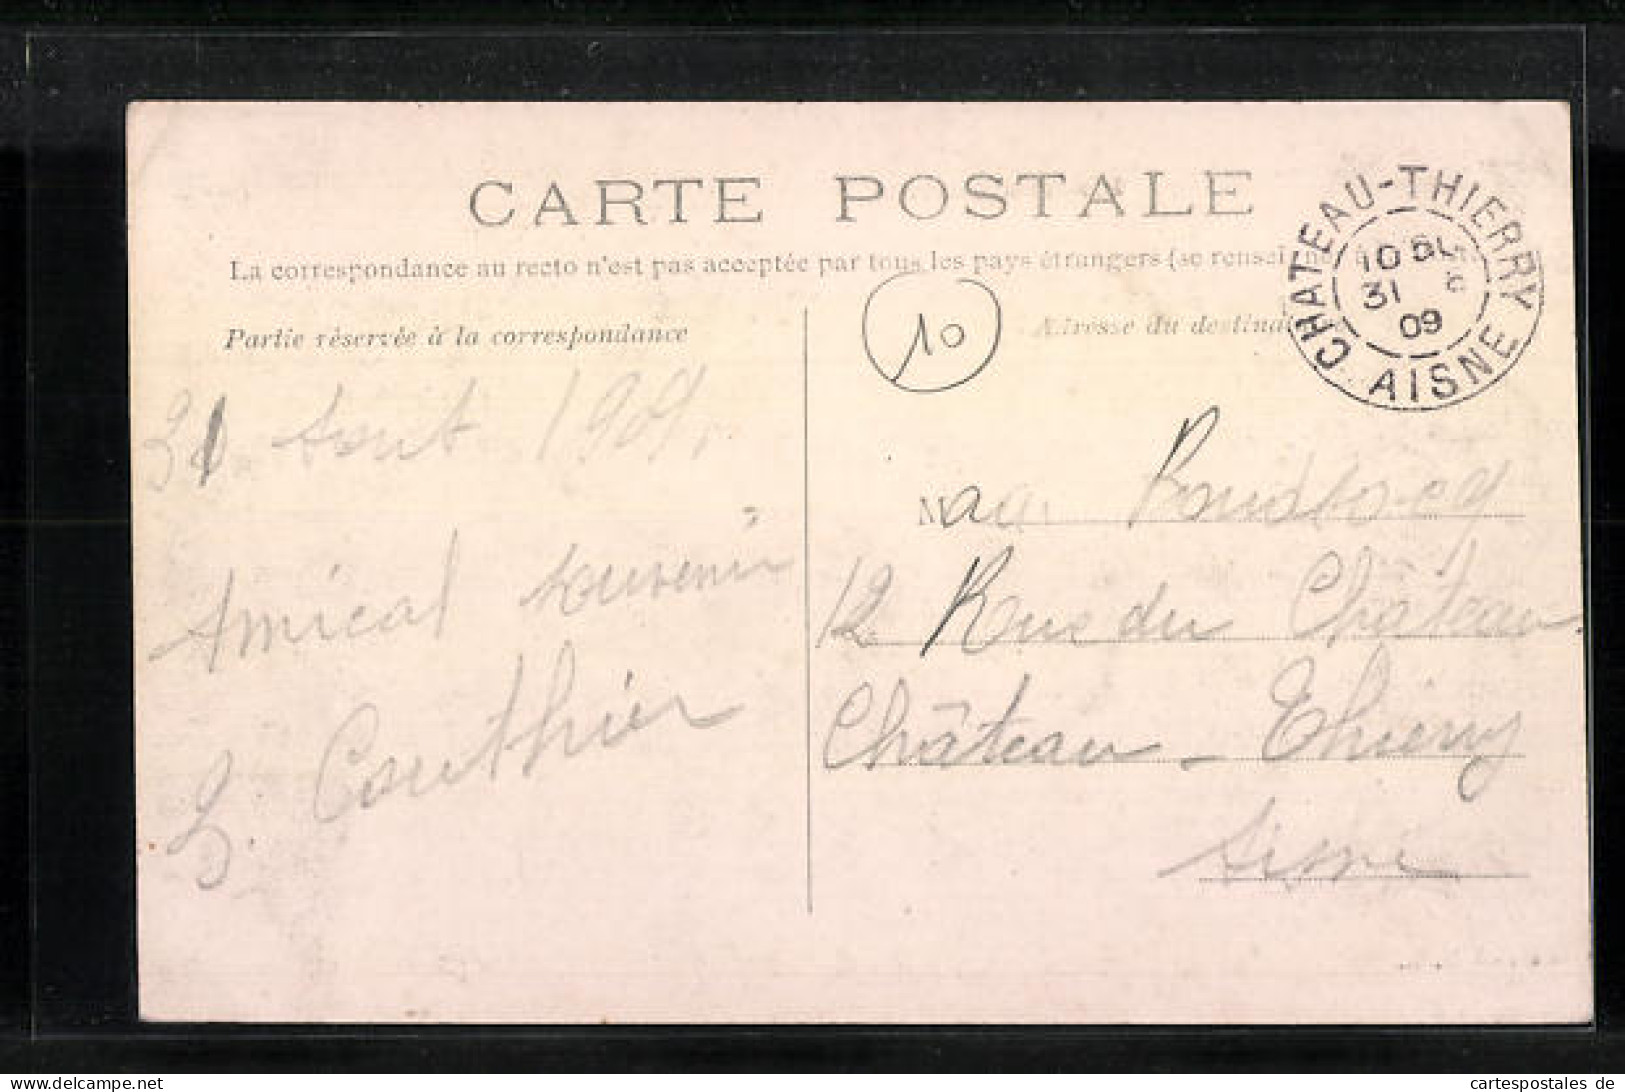 CARTE POSTALE
La correspondance au recto n'est pas acceptée par tous les pays étrangers (se rensei
Partie réservée à la correspondance
31 Aout 1909.
Amical souvenir
Gouthier
10
CHATEAU-THIERRY
10
31
09
AISNE
Adresse du destina
12 Rue du Château
Château - Thierry
Aisne
cartespostales de